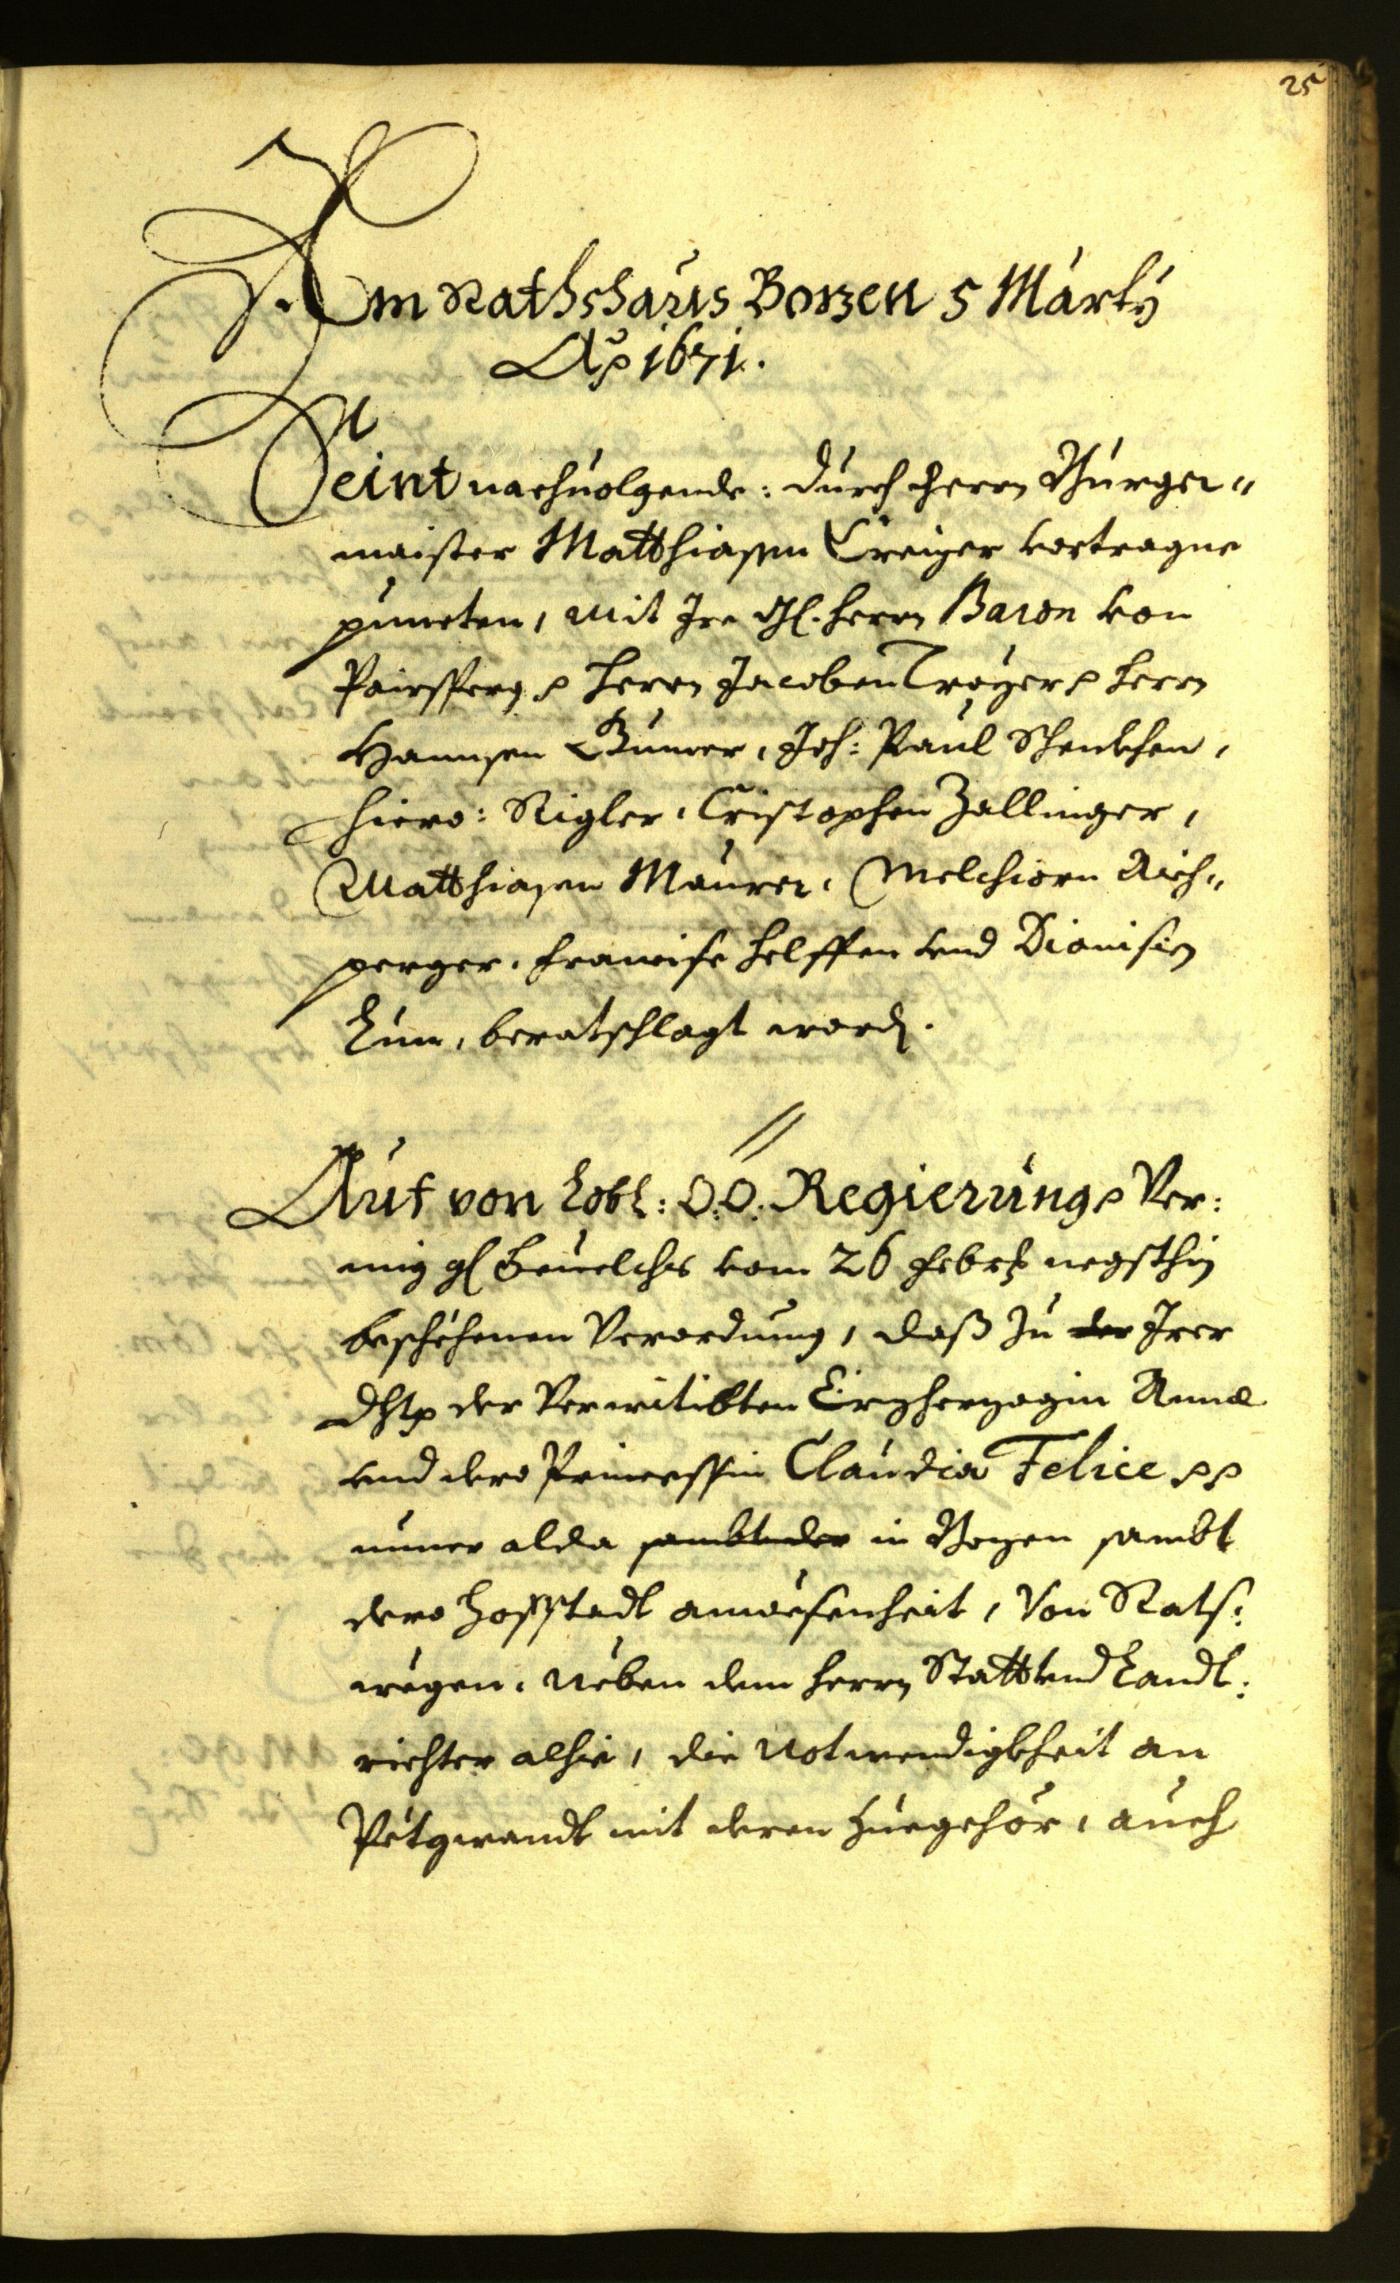 25
Am Rathshaus Botzen 5 Marty
Ao 1671.
Seint nachuolgende: durch Herrn Burger=
maister Matthiassen Creizer vortragne
puncten, mit Ire Gl. Herrn Baron von
Pairsperg p Herrn Jacoben Troyer p Herrn
Hannsen Gumer, Joh: Paul Schenkhen,
Hiero: Rigler, Cristophen Zallinger,
Matthiasen Maurer, Melchiorn Aich=
perger, Francisc Helffen vnd Dionisien
Lun, beratschlagt word.
Auf von Lobl: O:O: Regierung p Ver:
mig gl Beuelchs vom 26 Febr negsthin
beschehenen Verordnung, daß zu der Irer
Dhlt der Verwitibten Erzherzogin Annæ
vnd dero Princessin Claudia Felice pp
nuner alda sambt der in Bozen sambt
dero Hoffstadt anwesenheit, Von Rats:
wegen, neben dem Herrn Statt vnd Landt:
richter alhie, die Notwendigkheit an
Pétgwandt mit deren Zuegehör, auch